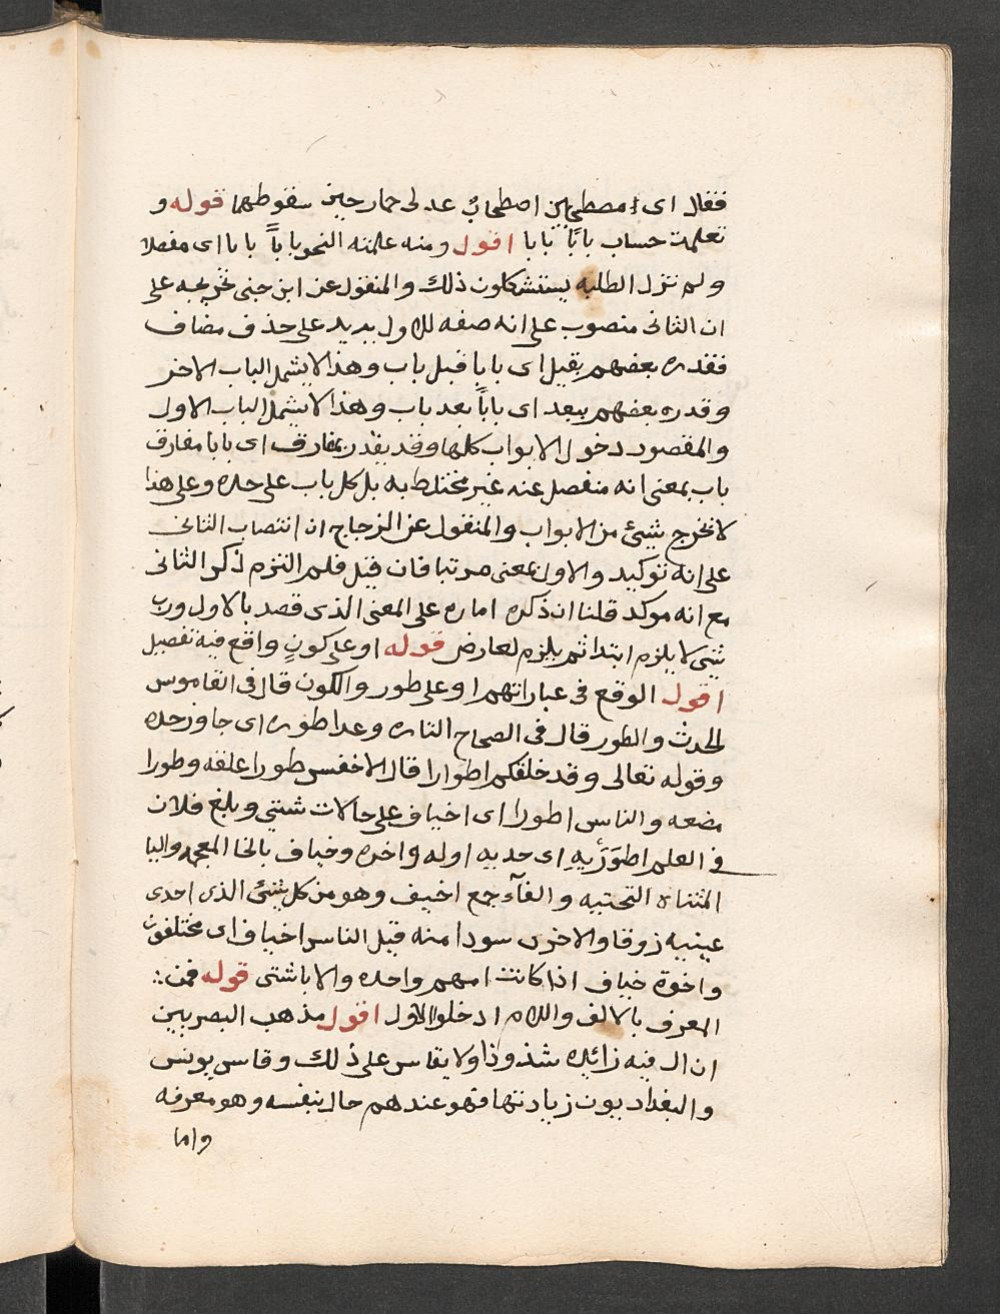 فقال اى مصطحبين اصطحاب عدلى حمار حين سقوطهما قوله و
تعلمت حساب بابًا بابا اقول ومنه علمته النحو بابًا بابا اى مفصلا
ولم تزل الطلبه يستشكلون ذلك والمنقول عن ابن جنى تخريجه على
ان الثانى منصوب على انه صفه للاول بديد على حذف مضاف
فقدره بعضهم بقبل اى بابا قبل باب وهذا لا يشمل الباب الاخر
وقدره بعضهم ببعد اى باباً بعد باب وهذا لا يشمل الباب الاول
والمقصود دخول الابواب كلها وقد يقدر بمفارق اى بابا مفارق
باب بمعنى انه منفصل عنه غير مختلط به بل كل باب على حده وعلى هذا
لا يخرج شيئ من الابواب والمنقول عن الزجاج ان انتصاب الثانى
على انه توكيد والاول بمعنى مرتبا فان قيل فلم التزم ذكر الثانى
مع انه موكد قلنا ان ذكره اماره على المعنى الذى قصد بالاول ورب
شيى لا يلزم ابتدا ثم يلزم لعارض قوله او على كونٍ واقع فيه تفصيل
اقول الوقع فى عباراتهم او على طور والكون قال فى القاموس
الحدث والطور قال فى الصحاح التاره وعدا طوره اى جاوز حده
وقوله تعالى وقد خلقكم اطوارا قال الاخفس طورا علقه وطورا
مضعه والناس اطورا اى اخياف على حالات شتى وبلغ فلان
فى العلم اطوَرَيهِ اى حديه اوله واخره وخياف بالخا المعجمه واليا
المثناه التحتيه والفآء جمع اخيف وهو من كل شيئ الذى احدى
عينيه زرقا والاخرى سودا منه قيل الناس اخياف اى مختلفون
واخوة خياف اذا كانت امهم واحده والابا شتى قوله فمن
المعرف بالالف واللام ادخلوا الاول اقول مذهب البصريين
ان ال فيه زائده شذوذا ولا يقاس على ذلك وقاس يونس
والبغداديون زيادتها فهو عندهم حال بنفسه وهو معرفه
واما